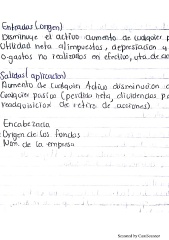 Entradas (origen)
Disminuye el activo aumento de cualquier p
Utilidad neta al impuestos, depreciacion y
o gastos no realizados en efectivo, vta. de
Salidas (aplicación)
Aumento de cualquier Activo disminución d
cualquier pasivo (perdida neta, dividendos p
readquisicion de retiro de acciones).
Encabezado
Origen de los fondos
Nom. de la empresa
Scanned by CamScanner